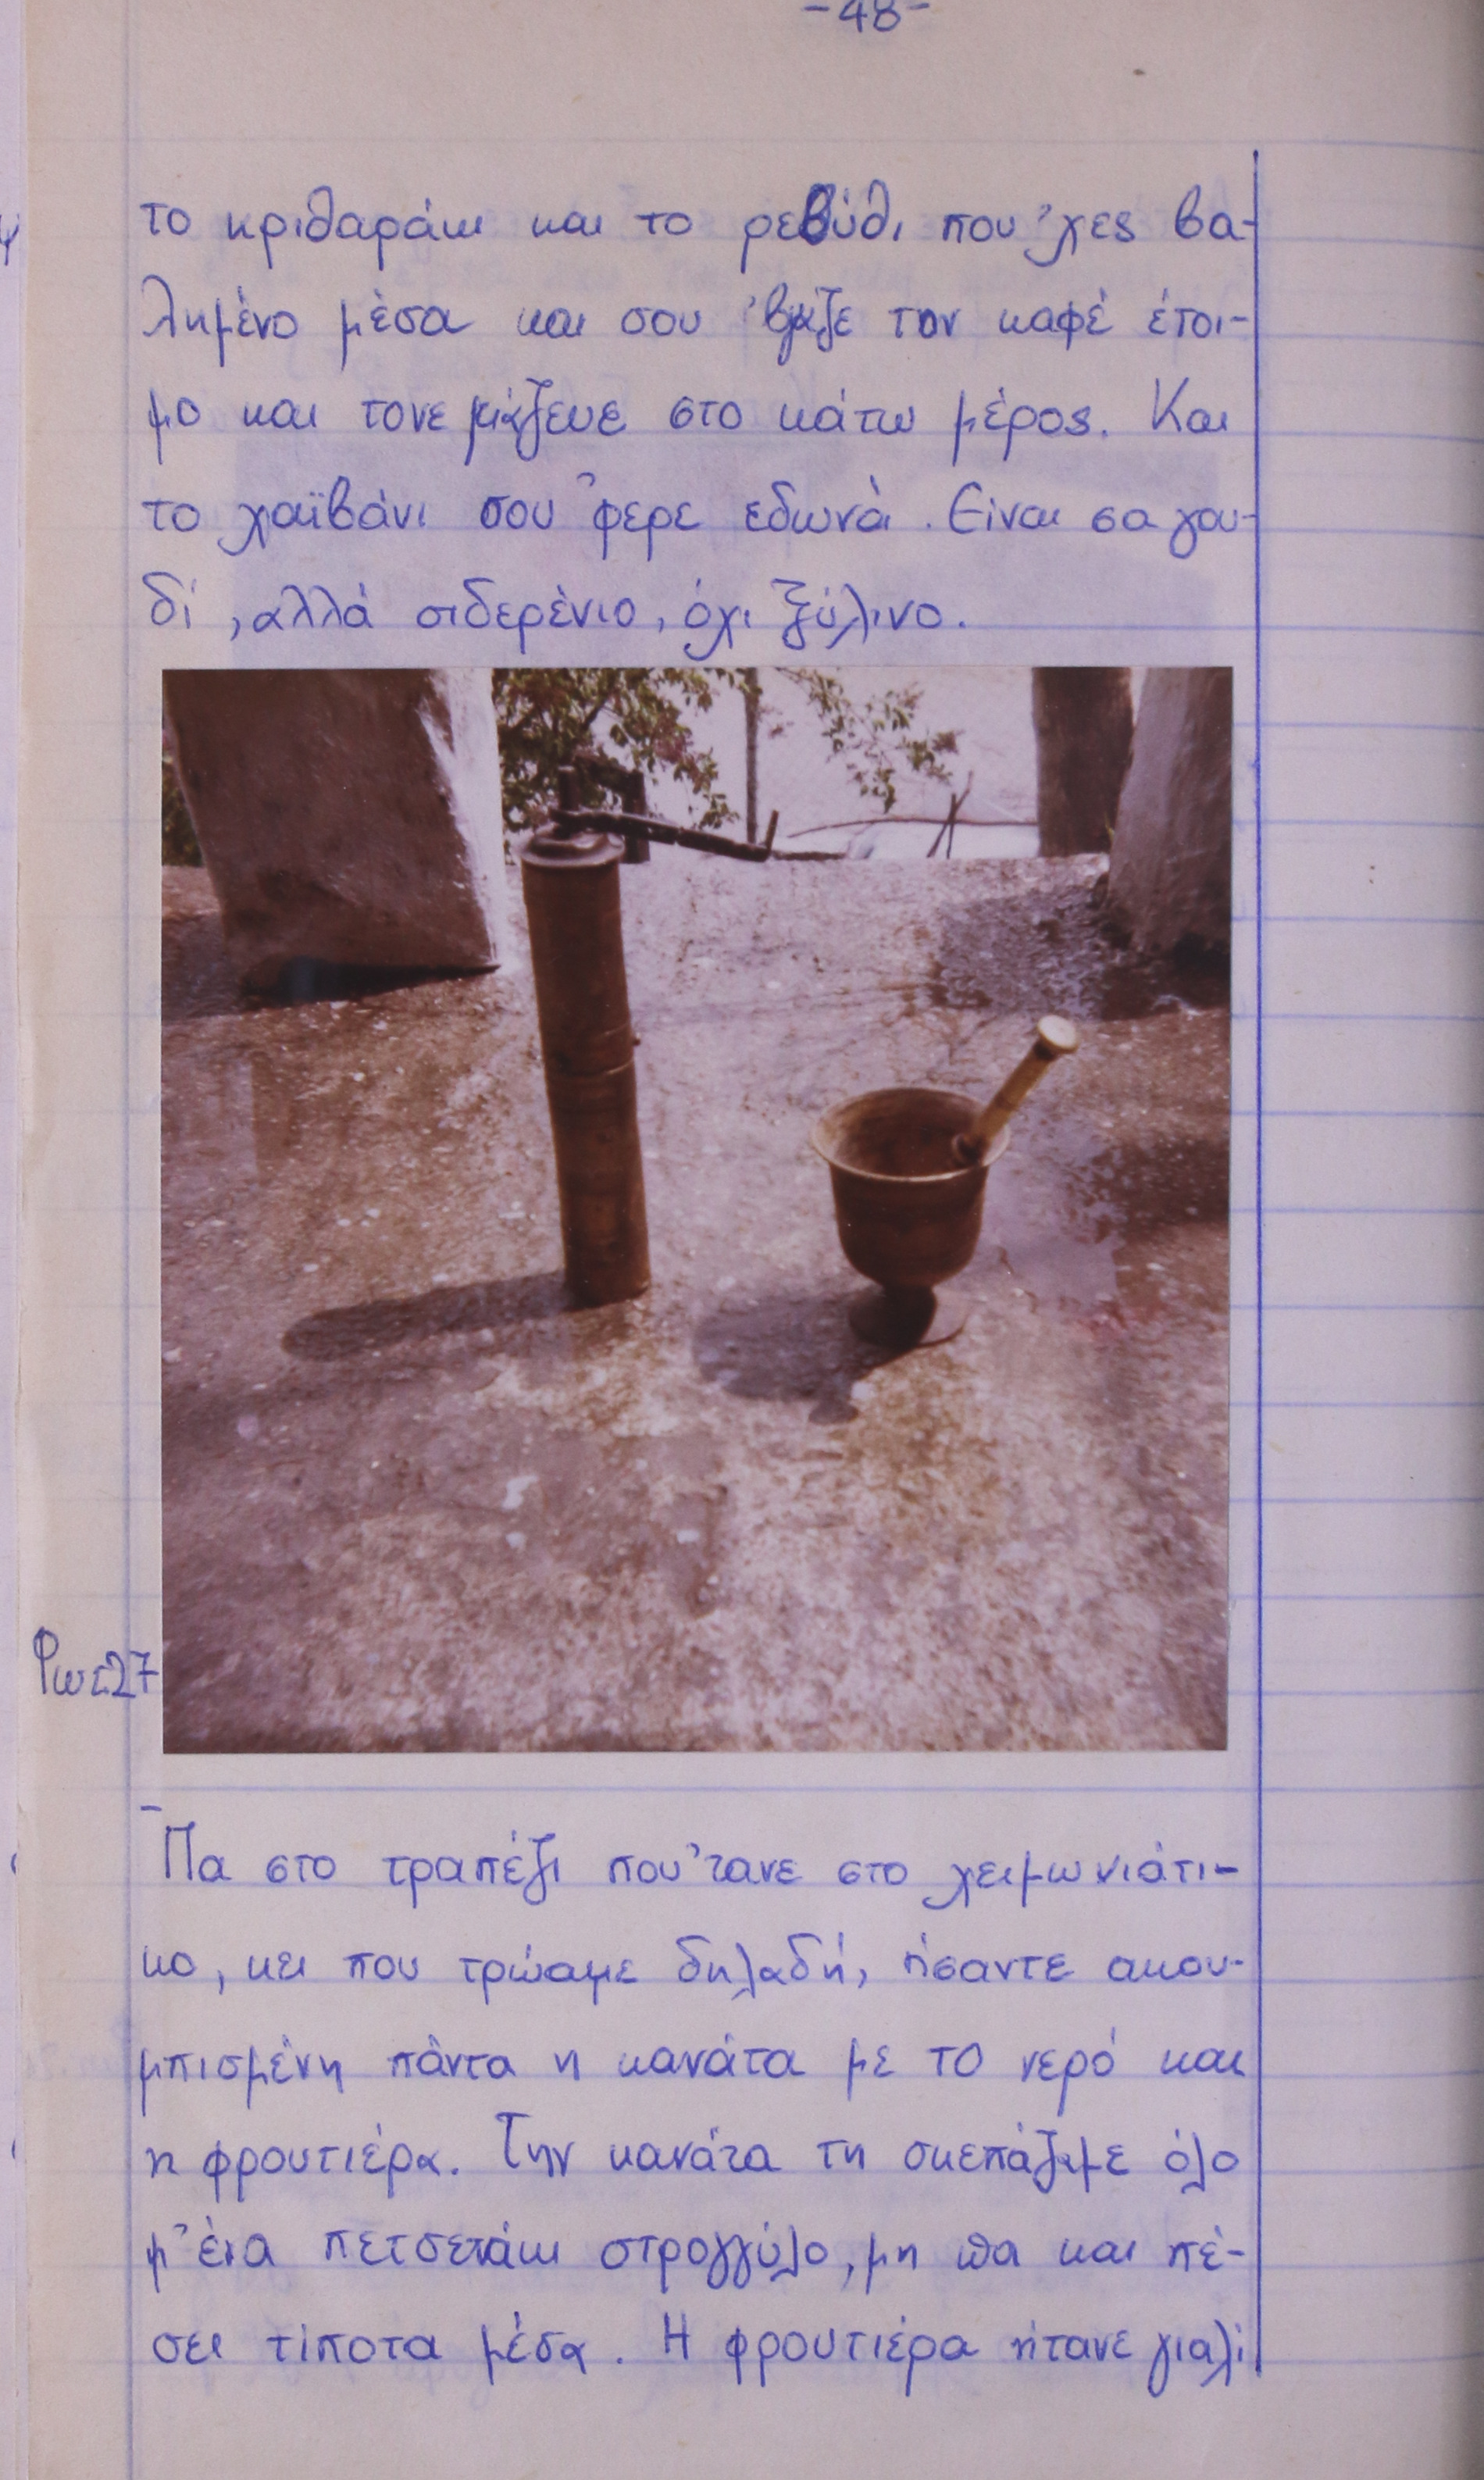 -48-
το κριθαράκι και το ρεβύθι που 'χες βα-
λημένο μέσα και σου 'βγαζε τον καφέ έτοι-
μο και τονε μάζευε στο κάτω μέρος. Και
το χαϊβάνι σου 'φερε εδωνά. Είναι σα γου-
δί, αλλά σιδερένιο, όχι ξύλινο.
Φωτ.27
- Πα στο τραπέζι που 'τανε στο χειμωνιάτι-
κο, κει που τρώαμε δηλαδή, ήσαντε ακου-
μπισμένη πάντα η κανάτα με το νερό και
η φρουτιέρα. Την κανάτα τη σκεπάζαμε όλο
μ' ένα πετσετάκι στρογγύλο, μη πα και πέ-
σει τίποτα μέσα. Η φρουτιέρα ήτανε γιαλί